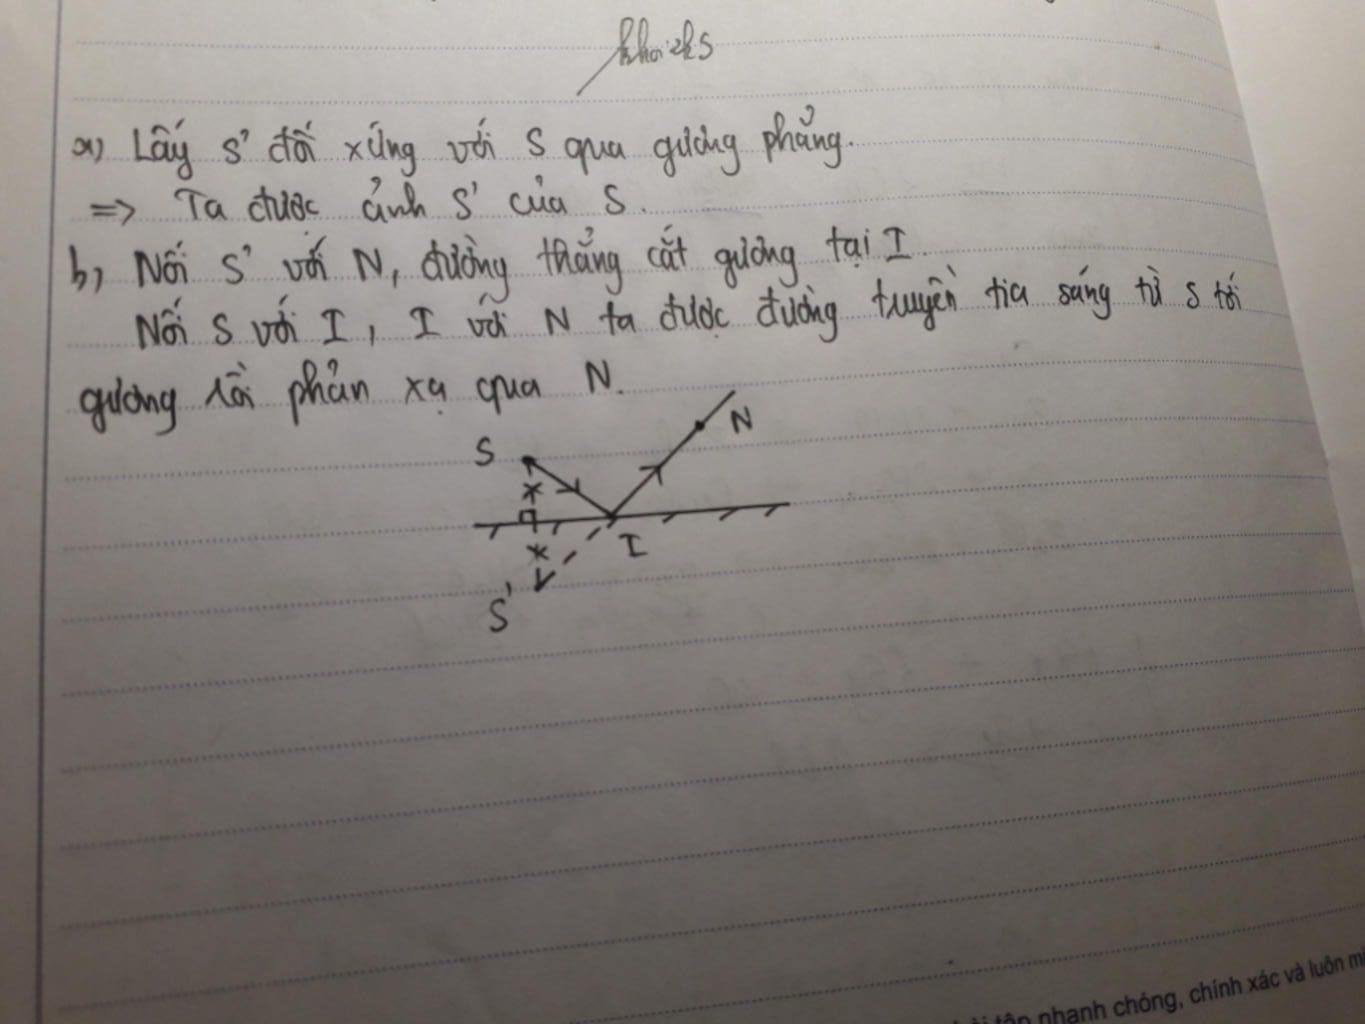 a) Lấy S' đối xứng với S qua gương phẳng.
=> Ta được ảnh S' của S.
b, Nối S' với N, đường thẳng cắt gương tại I.
Nối S với I, I với N ta được đường truyền tia sáng từ S tới
gương rồi phản xạ qua N.
S
N
I
S'
nhanh chóng, chính xác và luôn